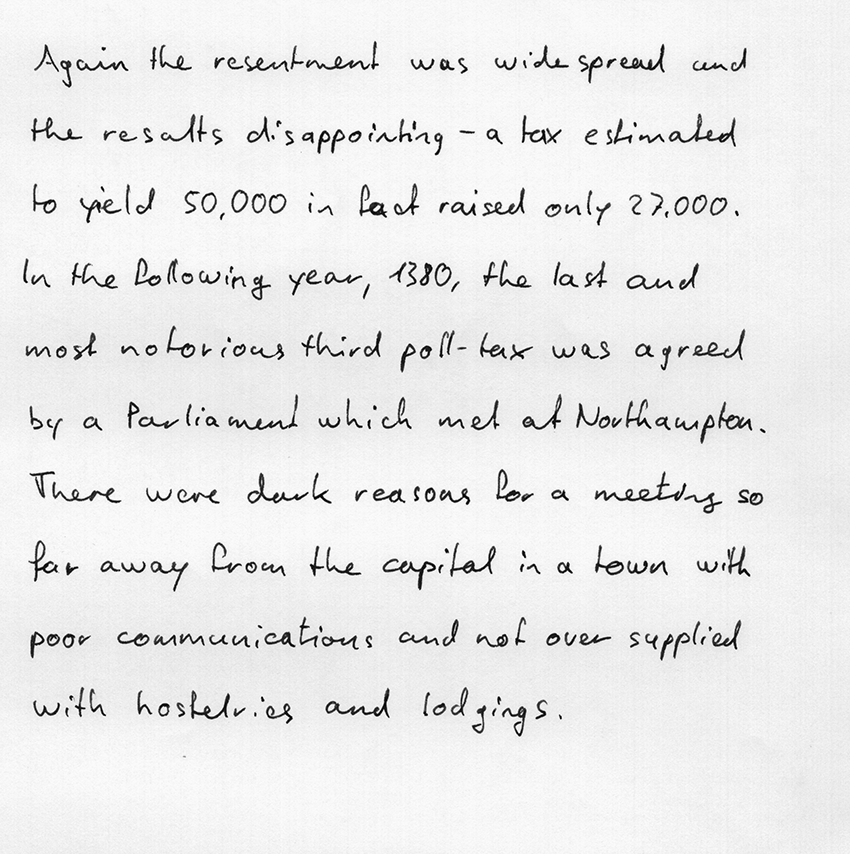 Again the resentment was widespread and
the results disappointing - a tax estimated
to yield 50,000 in fact raised only 27.000.
In the following year, 1380, the last and
most notorious third poll-tax was agreed
by a Parliament which met at Northampton.
There were dark reasons for a meeting so
far away from the capital in a town with
poor communications and not over supplied
with hostelries and lodgings.